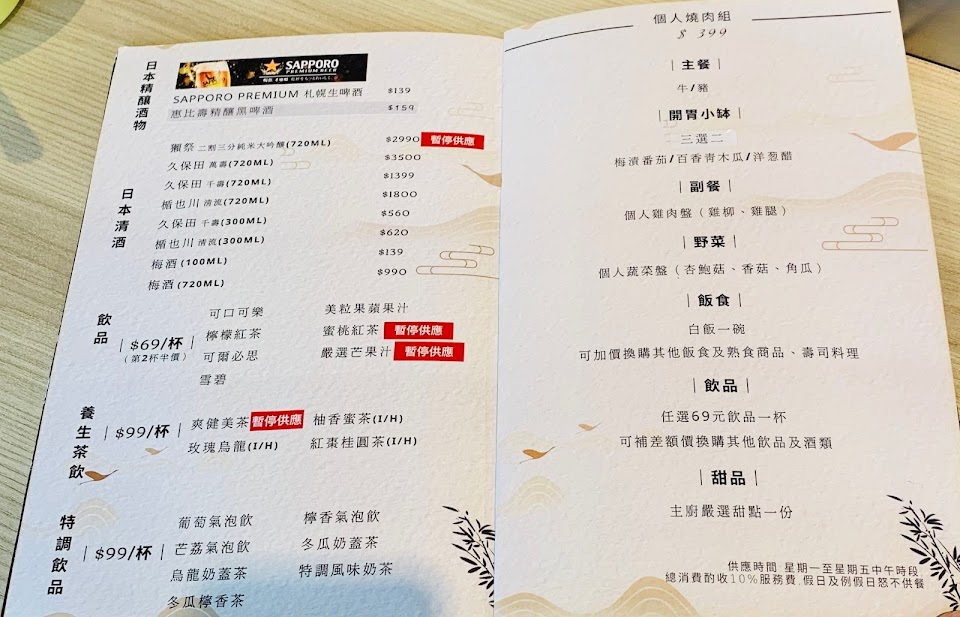 日本精釀酒物
SAPPORO
PREMIUM BEER
SAPPORO PREMIUM 札幌生啤酒 $139
惠比壽精釀黑啤酒 $159
日本清酒
獺祭 二割三分純米大吟釀(720ML) $2990 暫停供應
久保田 萬壽(720ML) $3500
久保田 千壽(720ML) $1399
楯也川 清流(720ML) $1800
久保田 千壽(300ML) $560
楯也川 清流(300ML) $620
梅酒(100ML) $139
梅酒(720ML) $990
飲品
$69/杯
(第2杯半價)
可口可樂 美粒果蘋果汁
檸檬紅茶 蜜桃紅茶 暫停供應
可爾必思 嚴選芒果汁 暫停供應
雪碧
養生茶飲
$99/杯
爽健美茶 暫停供應 柚香蜜茶(I/H)
玫瑰烏龍(I/H) 紅棗桂圓茶(I/H)
特調飲品
$99/杯
葡萄氣泡飲 檸香氣泡飲
芒荔氣泡飲 冬瓜奶蓋茶
烏龍奶蓋茶 特調風味奶茶
冬瓜檸香茶
個人燒肉組
$ 399
| 主餐 |
牛/豬
| 開胃小缽 |
三選二
梅漬番茄/百香青木瓜/洋蔥醋
| 副餐 |
個人雞肉盤(雞柳、雞腿)
| 野菜 |
個人蔬菜盤(杏鮑菇、香菇、角瓜)
| 飯食 |
白飯一碗
可加價換購其他飯食及熟食商品、壽司料理
| 飲品 |
任選69元飲品一杯
可補差額價換購其他飲品及酒類
| 甜品 |
主廚嚴選甜點一份
供應時間 星期一至星期五中午時段
總消費酌收10%服務費,假日及例假日怒不供餐